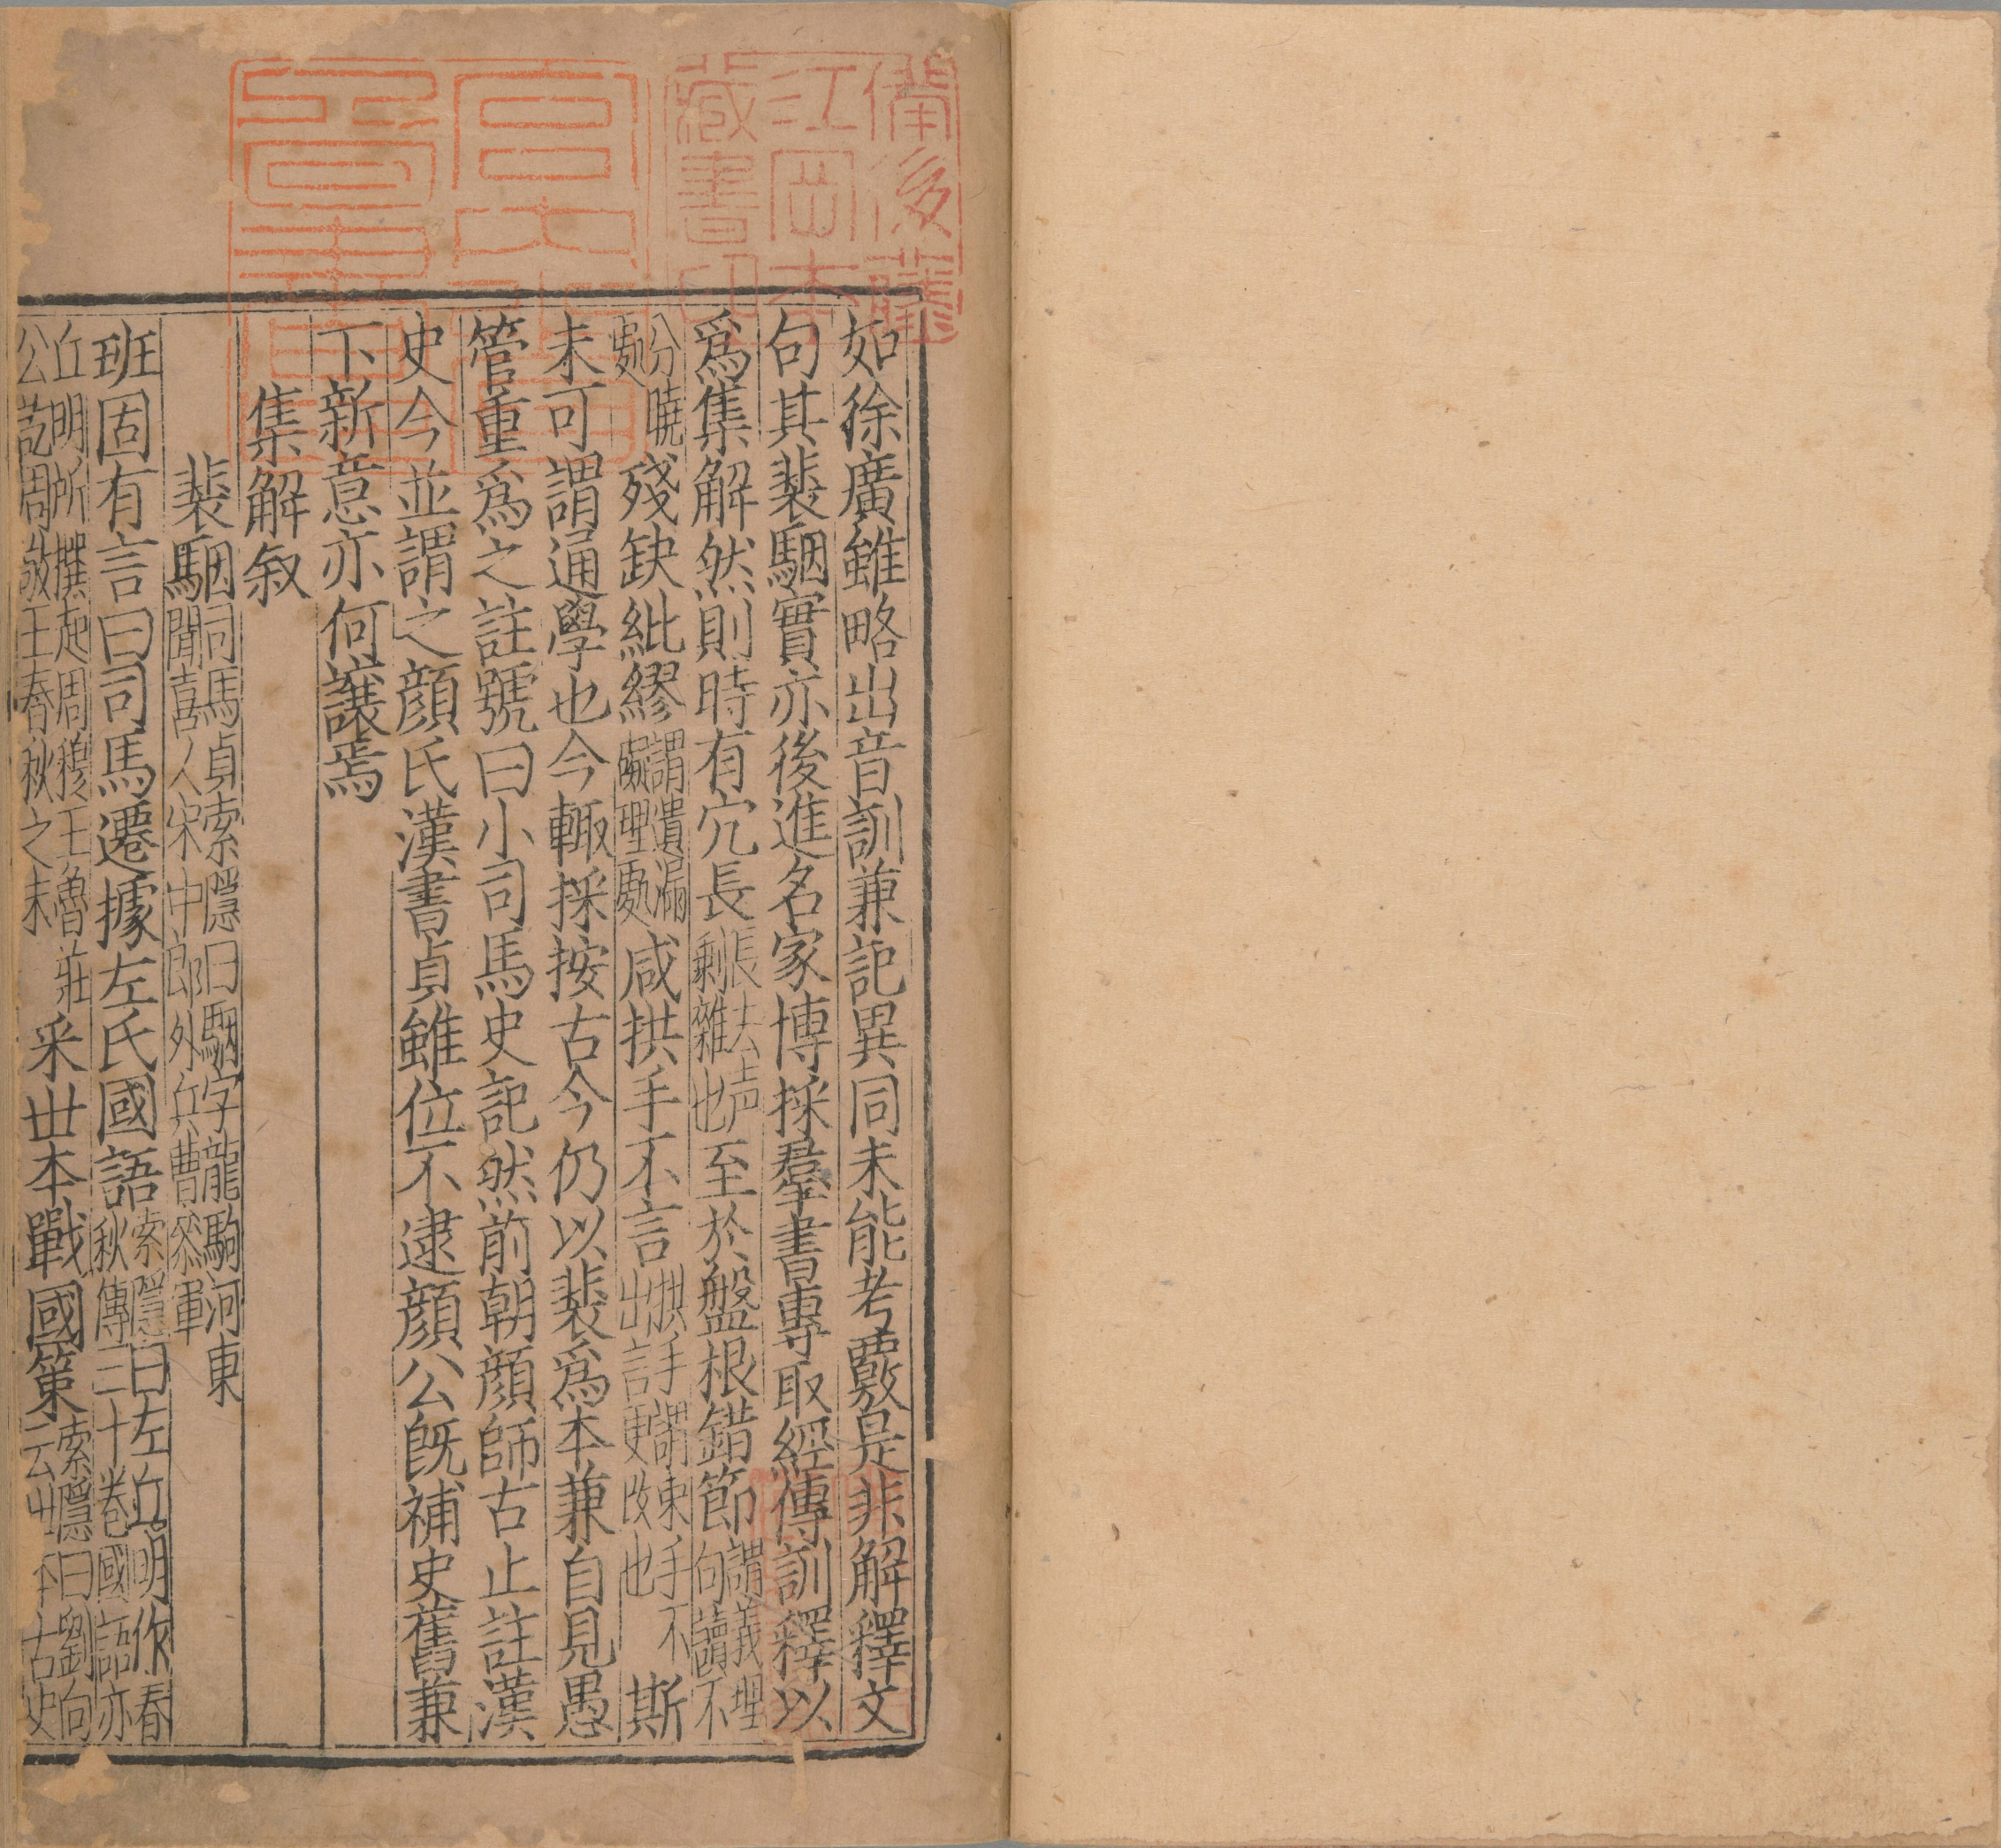 如徐廣雖略出音訓兼記異同未能考覈是非解釋文
句其裴駰實亦後進名家博採羣書專取經傳訓釋以
爲集解然則時有宂長長去上声剩雜也至於盤根錯節謂義理句讀不
分暁處殘缺紕繆謂遺漏癡理處咸拱手不言拱手謂束手不出言更改也斯
未可謂通學也今輙採按古今仍以裴爲本兼自見愚
管重爲之註號曰小司馬史記然前朝顔師古止註漢
史今並謂之顔氏漢書貞雖位不逮顔公旣補史舊兼
下新意亦何讓焉
集解叙
裴駰司馬貞索隱曰駰字龍駒河東聞喜人宋中郎外兵曹叅軍
班固有言曰司馬遷據左氏國語索隱曰左丘明作春秋傳三十卷國語亦
丘明所撰起周穆王魯莊公訖周敬王春秋之末采丗本戰國策索隱曰劉向云丗本古史
備後藤
江岡本
藏書印